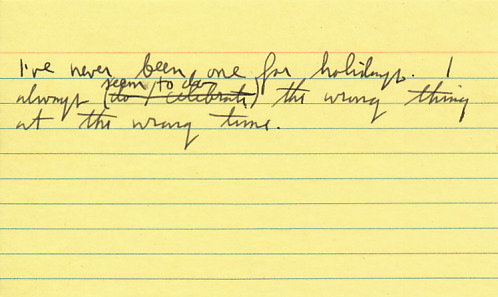 I've never been one for holidays. I
seem to do
always (do / celebrate) the wrong thing
at the wrong time.